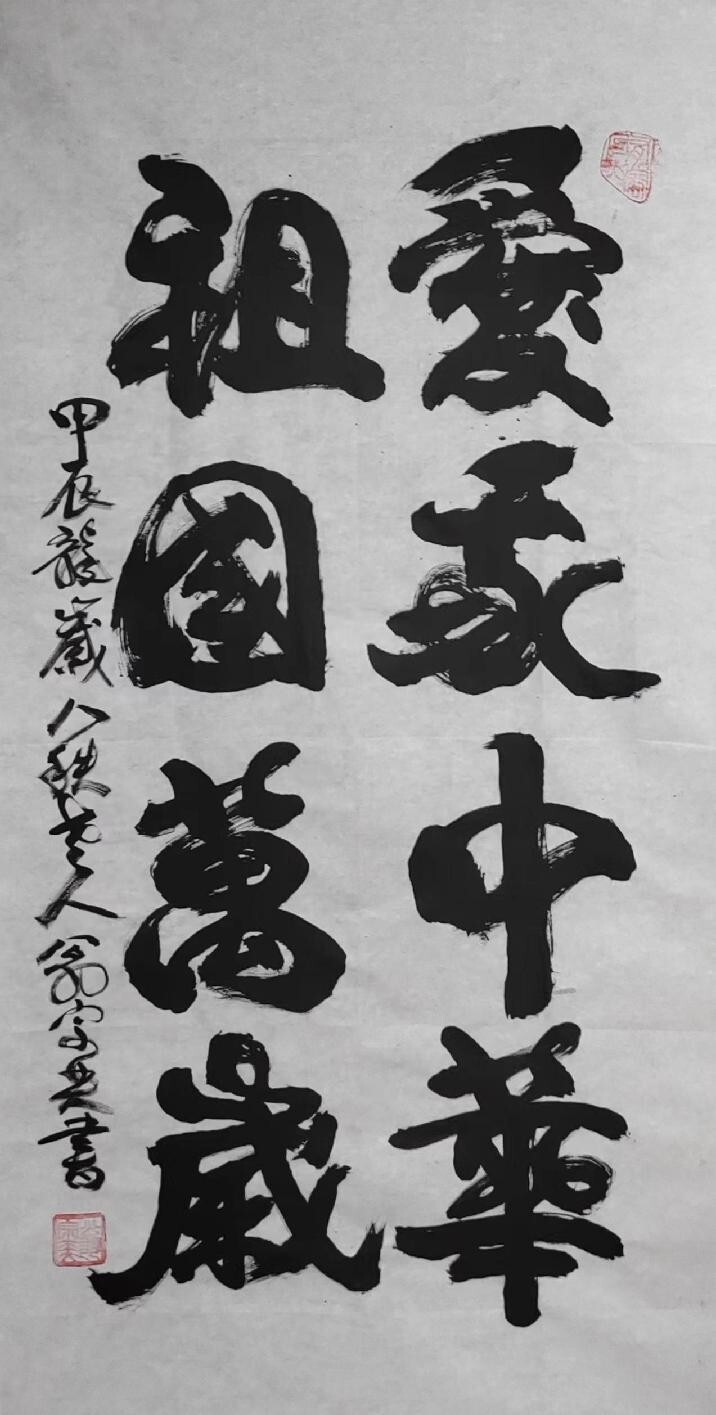 愛我中華
祖國萬歲
甲辰龍歲八秩老人翁宗书書